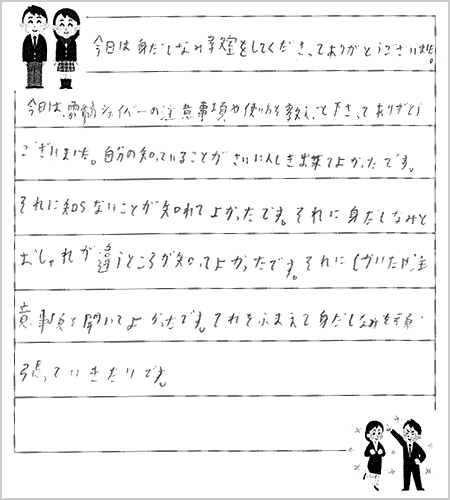 今日は身だしなみ教室をしてくださってありがとうございました。
今日は、電動シェイバーの注意事項や使い方を教えて下さってありがとう
ございました。自分の知っていることがさいにんしき出来てよかったです。
それに知らないことが知れてよかったです。それに身だしなみと
おしゃれが違うところが知ってよかったです。それに
事項を聞いてよかったです。それをふまえて身だしなみを頑
張っていきたいです。